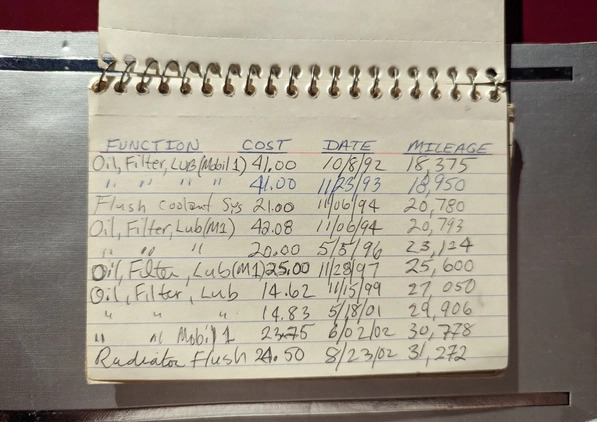 FUNCTION COST DATE MILEAGE
Oil, Filter, Lub(Mobil 1) 41.00 10/8/92 18,375
" " " " 41.00 11/23/93 18,950
Flush Coolant Sys 21.00 11/06/94 20,780
Oil, Filter, Lub(M1) 42.08 11/06/94 20,793
" " " 20.00 5/5/96 23,124
Oil, Filter, Lub(M1) 25.00 11/28/97 25,600
Oil, Filter, Lub 14.62 11/15/99 27,050
" " " 14.83 5/18/01 29,906
" " Mobil 1 23.75 6/02/02 30,778
Radiator Flush 24.50 8/23/02 31,272